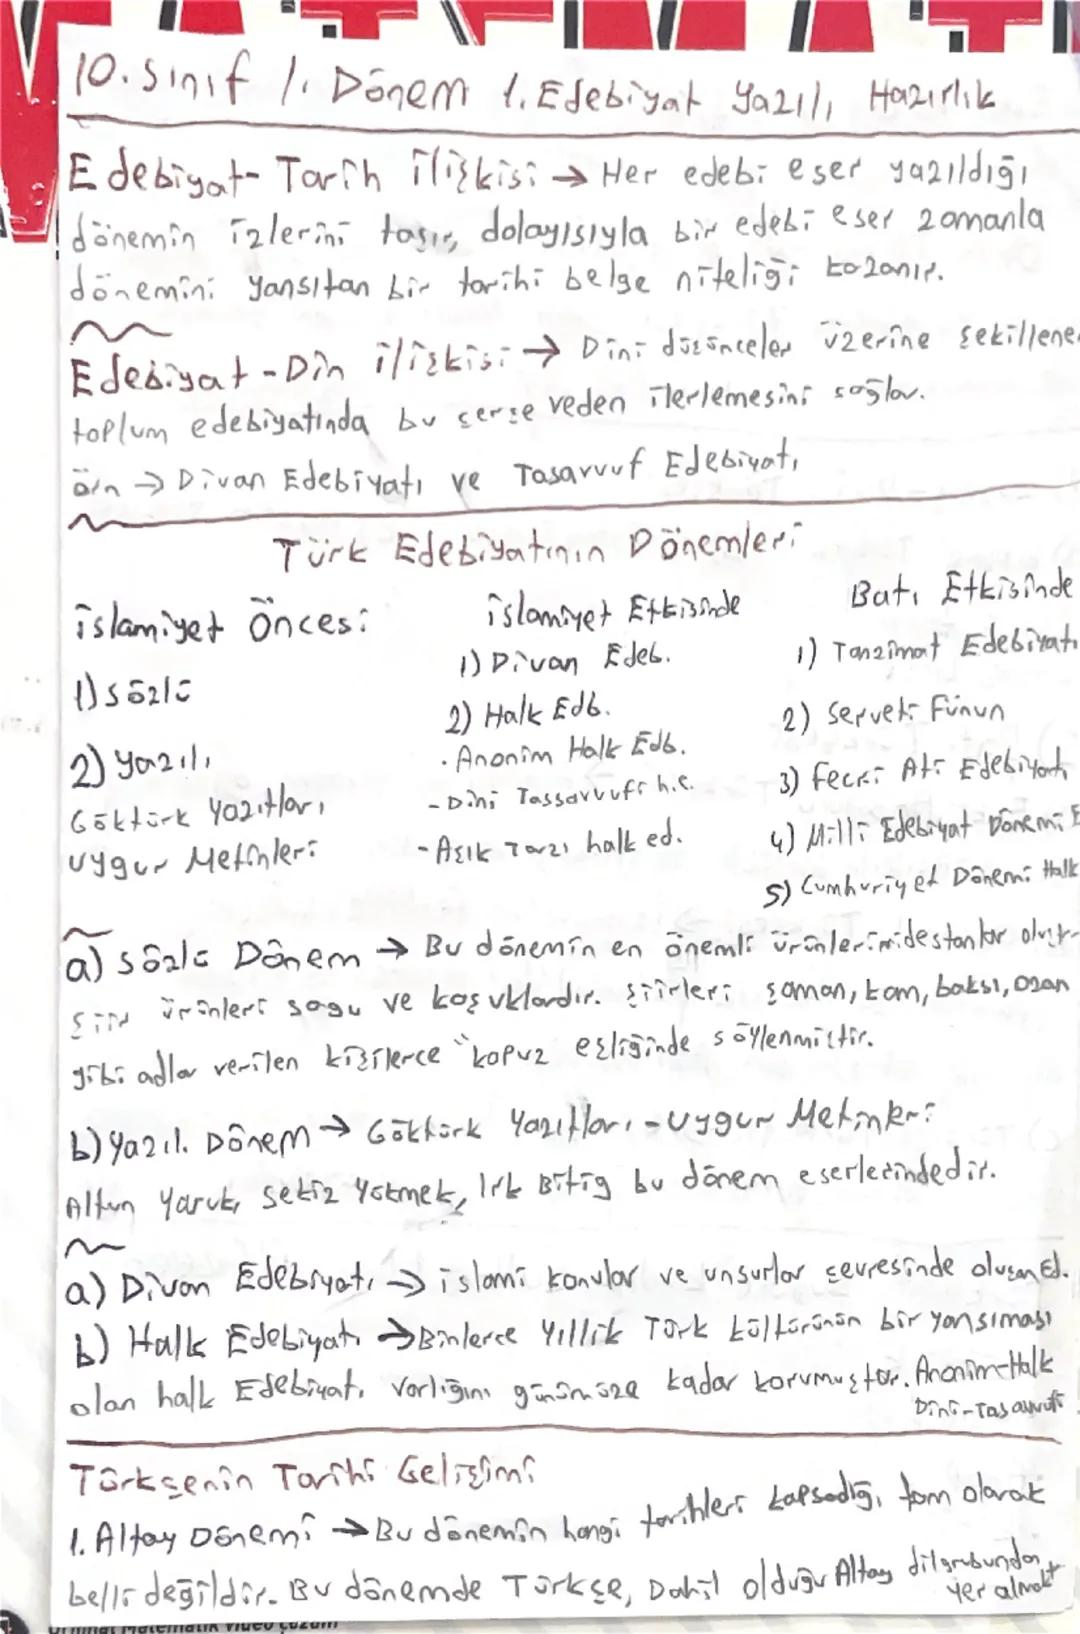 10. Sınıf 1. Dönem 1. Edebiyat Yazılı Hazırlık
Edebiyat-Tarih İlişkisi → Her edebi eser yazıldığı
dönemin izlerini taşır, dolayısıyla bir edebi eser zamanla
dönemini yansıtan bir tarihi belge niteliği kazanır.
Edebiyat-Din ilişkisi → Dini düşünceler üzerine şekillenen
toplum edebiyatında bu çerçeveden ilerlemesini sağlar.
örn → Divan Edebiyatı ve Tasavvuf Edebiyatı
Türk Edebiyatının Dönemleri
islamiyet Öncesi
1) Sözlü
2) Yazılı
Göktürk Yazıtları
Uygur Metinleri
islamiyet Etkisinde
1) Divan Edeb.
2) Halk Edb.
. Anonim Halk Edb.
- Dini Tassavvufi h.e.
- Aşık Tarzı halk ed.
Batı Etkisinde
1) Tanzimat Edebiyatı
2) Serveti Fünun
3) Fecri Ati Edebiyatı
4) Milli Edebiyat Dönemi E
5) Cumhuriyet Dönemi Halk
a) Sözlü Dönem → Bu dönemin en önemli ürünlerini destanlar oluşt-
Şiir ürünleri sagu ve koşuklardır. Şiirleri şaman, kam, baksı, ozan
gibi adlar verilen kişilerce "kopuz eşliğinde söylenmiştir.
b) Yazılı Dönem → Göktürk Yazıtları - Uygur Metinleri
Altun Yaruk, Sekiz Yükmek, Irk Bitig bu dönem eserlerindedir.
a) Divan Edebiyatı → islami konular ve unsurlar çevresinde oluşan Ed.
b) Halk Edebiyatı → Binlerce Yıllık Türk kültürünün bir yansıması
olan halk Edebiyatı varlığını günümüze kadar korumuştur. Anonim-Halk
Dini-Tasavvufi
Türkçenin Tarihi Gelişimi
1. Altay Dönemi → Bu dönemin hangi tarihleri kapsadığı tam olarak
belli değildir. Bu dönemde Türkçe, Dahil olduğu Altay dil grubundan
yer almakt